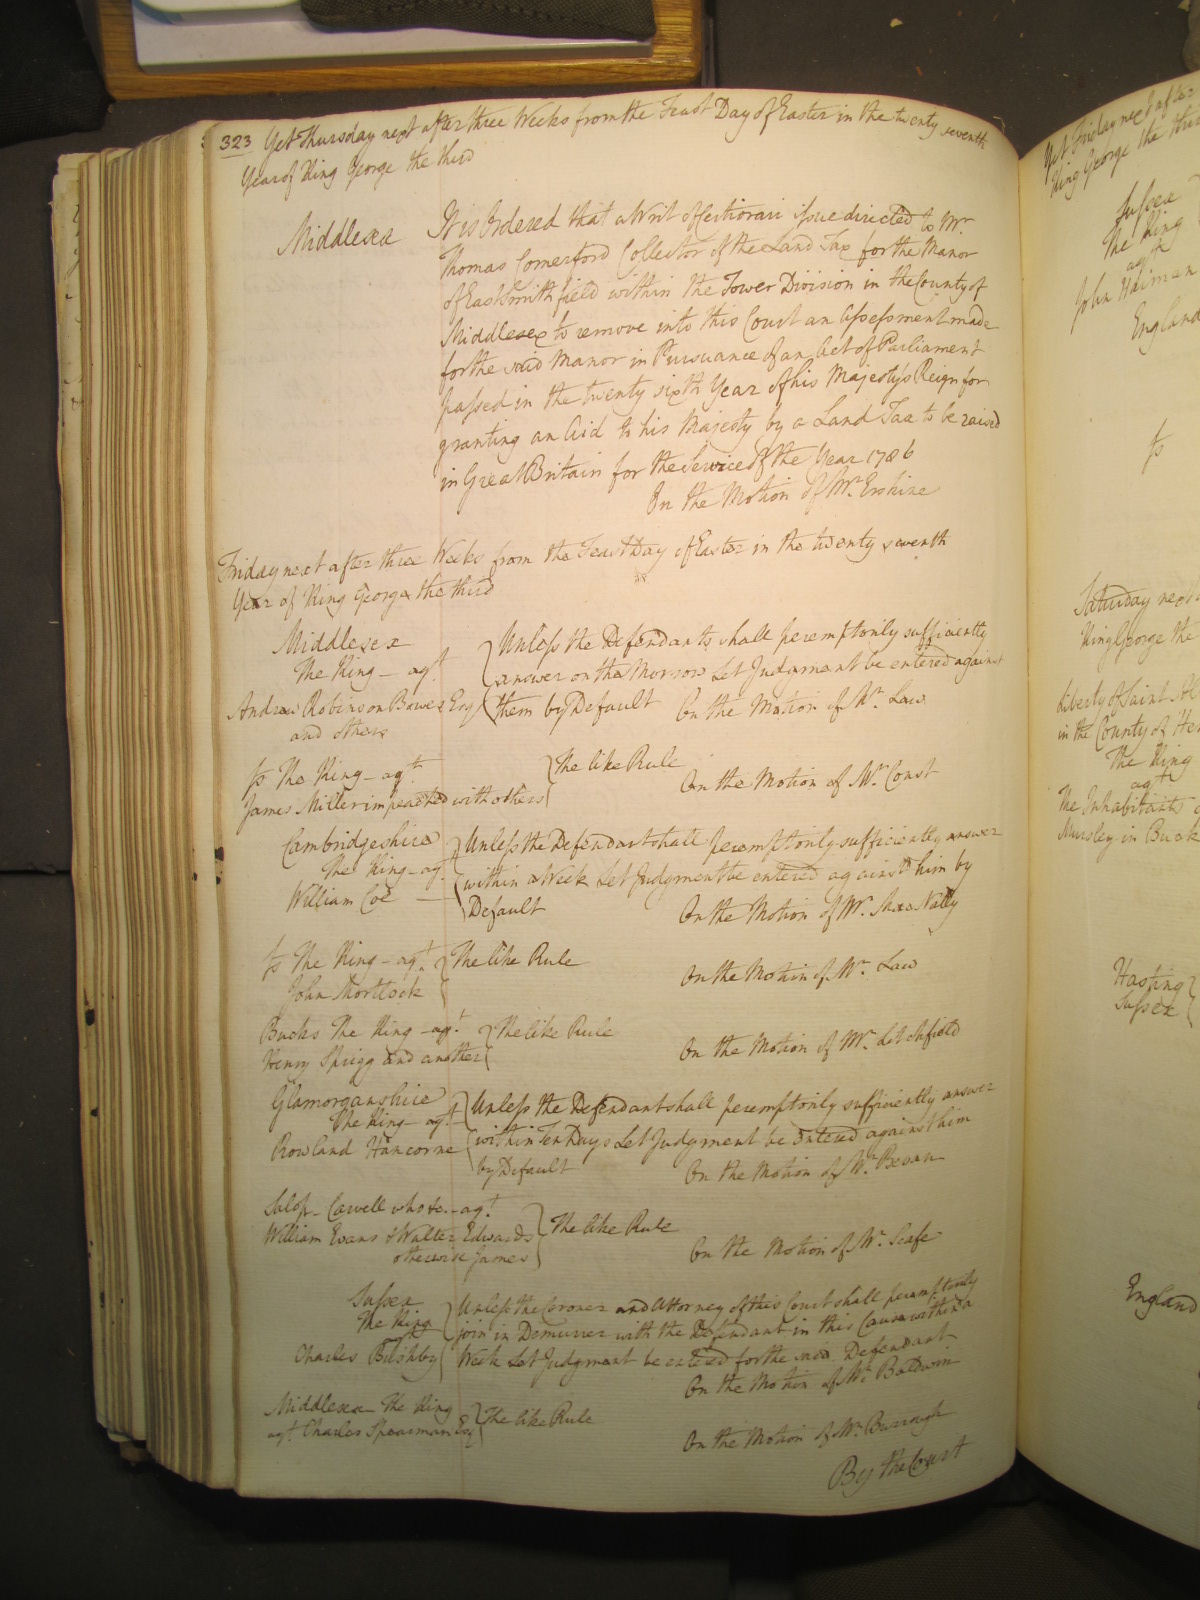 323 Yet Thursday next after three Weeks from the Feast Day of Easter in the twenty seventh
Year of King George the third
Middlesex
It is Ordered that a Writ of Certiorari issue directed to Mr.
Thomas Comerford Collector of the Land Tax for the Manor
of East Smithfield within the Tower Division in the County of
Middlesex to remove into this Court an Assessment made
for the said Manor in Pursuance of an Act of Parliament
passed in the twenty sixth Year of his Majesty's Reign for
granting an Aid to his Majesty by a Land Tax to be raised
in Great Britain for the Service of the Year 1786
On the Motion of Mr. Erskine
Friday next after three Weeks from the Feast Day of Easter in the twenty seventh
Year of King George the third
Middlesex
The King - agt.
Andrew Robinson Bowes Esq
and others
Unless the Defendants shall peremptorily sufficiently
answer on the Morrow Let Judgment be entered against
them by Default On the Motion of Mr. Law
The King - agt.
James Miller impeached with others
The like Rule
On the Motion of Mr. Const
Cambridgeshire
The King - agt.
William Coe
Unless the Defendant shall peremptorily sufficiently answer
within a Week Let Judgment be entered against him by
Default On the Motion of Mr. MacNally
The King - agt.
John Mortlock
The like Rule
On the Motion of Mr. Law
Bucks The King - agt.
Henry Sprigg and another
The like Rule
On the Motion of Mr. Litchfield
Glamorganshire
The King - agt.
Rowland Hancorne
Unless the Defendant shall peremptorily sufficiently answer
within Ten Days Let Judgment be entered against him
by Default On the Motion of Mr. Bevan
Salop - Cawell who &c. - agt.
William Evans & Walter Edwards
otherwise James
The like Rule
On the Motion of Mr. Scafe
Sussex
The King
Charles Bushby
Unless the Coroner and Attorney of this Court shall peremptorily
join in Demurrer with the Defendant in this Cause within a
Week Let Judgment be entered for the said Defendant
On the Motion of Mr. Baldwin
Middlesex The King
agt. Charles Spearman Esq
The like Rule
On the Motion of Mr. Burrough
By the Court
Yet Friday next after
King George the
Sussex
The King
agt
John
England
Saturday next
King George the
Liberty of Saint
in the County of
The King
agt
The Inhabitants
Mursley in Buck
Hasting
Sussex
England